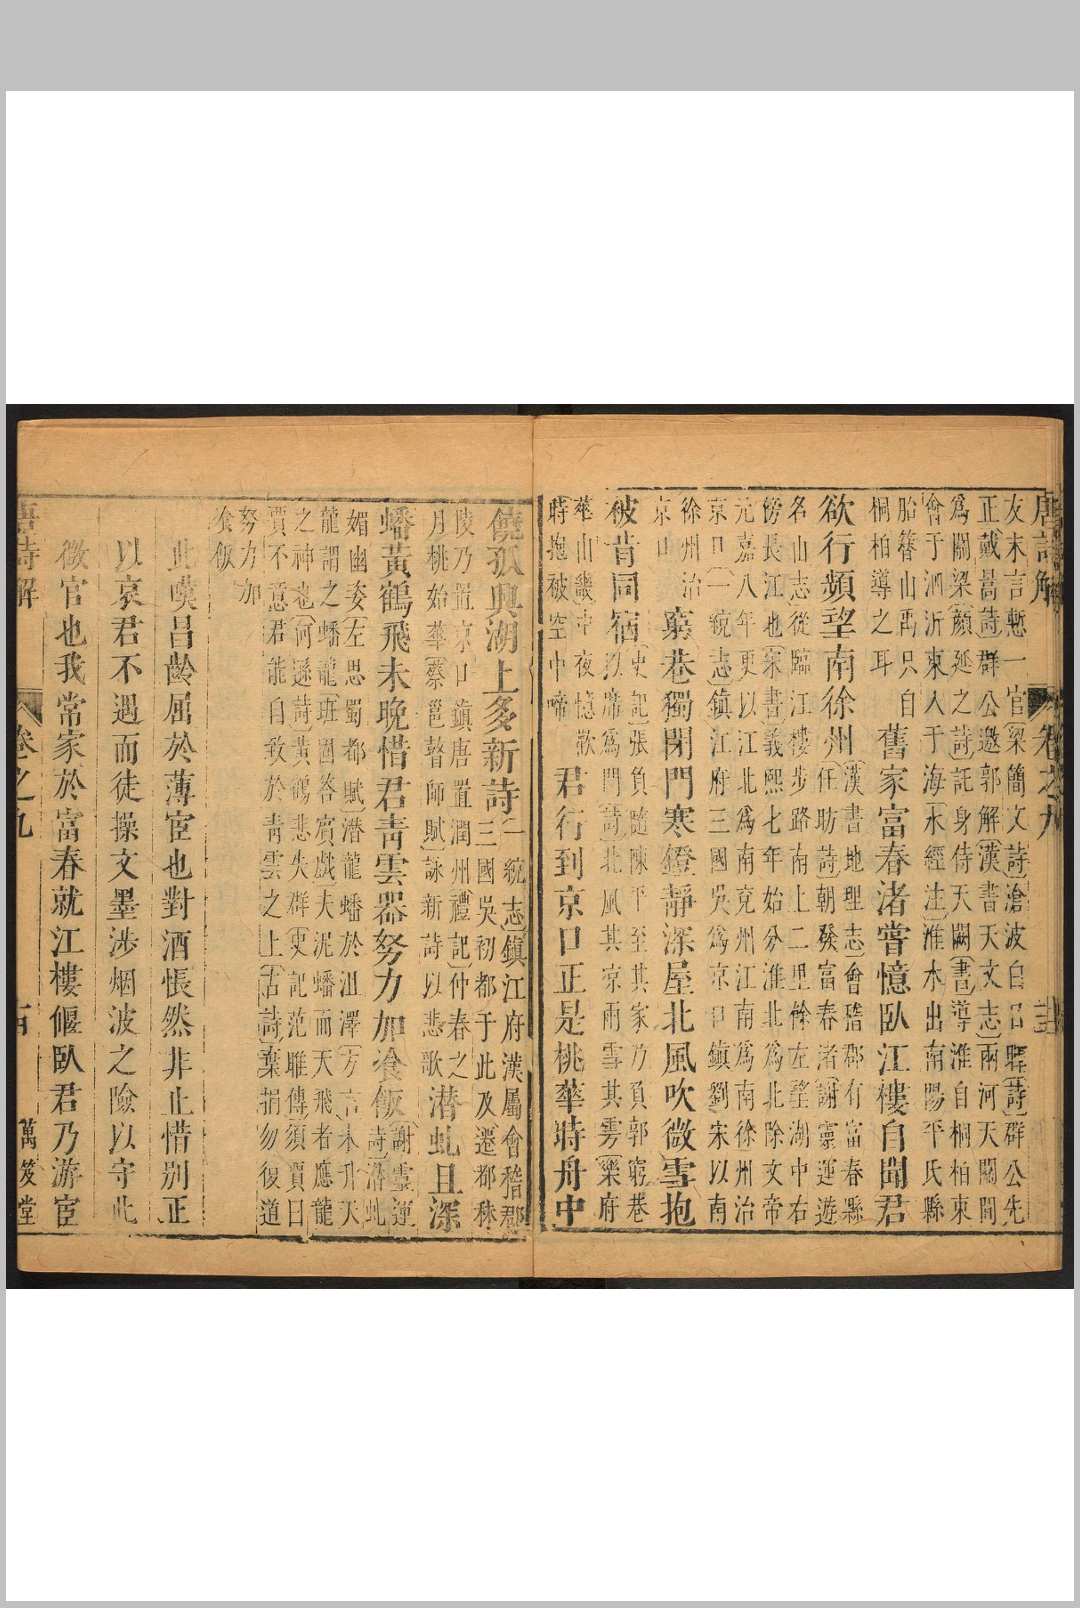 唐詩解 卷之九
友末言慙一官(梁簡文詩)滄波白日暉(詩)群公先
正(戴暠詩)群公邀郭解(漢書天文志)兩河天闕間
爲關梁(顏延之詩)託身侍天闕(書)導淮自桐柏東
會于泗沂東入于海(水經注)淮水出南陽平氏縣
胎簪山禹只自
桐柏導之耳
舊家富春渚嘗憶臥江樓自聞君
欲行頻望南徐州
(漢書地理志)會稽郡有富春縣
(任昉詩)朝發富春渚(謝靈運遊
名山志)從臨江樓步路南上二里餘左望湖中右
傍長江也(宋書)義熙七年始分淮北爲北徐文帝
元嘉八年更以江北爲南兗州江南爲南徐州治
京口(一統志)鎮江府三國吳爲京口鎮劉宋以南
徐州治
京口
窮巷獨閉門寒鐙靜深屋北風吹微雪抱
被肯同宿
(史記)張負隨陳平至其家乃負郭窮巷
以席爲門(詩)北風其凉雨雪其雱(樂府
華山畿)中夜憶歡
時抱破空中啼
君行到京口正是桃華時舟中
饒孤興湖上多新詩
(一統志)鎮江府漢屬會稽郡
三國吳初都于此及遷都秣
陵乃置京口鎮唐置潤州(禮記)仲春之
月桃始華(蔡邕瞽師賦)詠新詩以悲歌
潛虬且深
蟠黃鶴飛未晚惜君青雲器努力加飡飯
(謝靈運
詩)潛虬
媚幽姿(左思蜀都賦)潛龍蟠於沮澤(方言)未升天
龍謂之蟠龍(班固答賓戲)夫泥蟠而天飛者應龍
之神也(何遜詩)黃鶴悲失群(史記范雎傳)須賈曰
賈不意君能自致於青雲之上(古詩)棄捐勿復道
努力加
飡飯
此嘆昌齡屈於薄宦也對酒悵然非止惜别正
以哀君不遇而徒操文墨涉烟波之險以守此
微官也我常家於富春就江樓偃臥君乃游宦
唐詩解 卷之九 萬笈堂